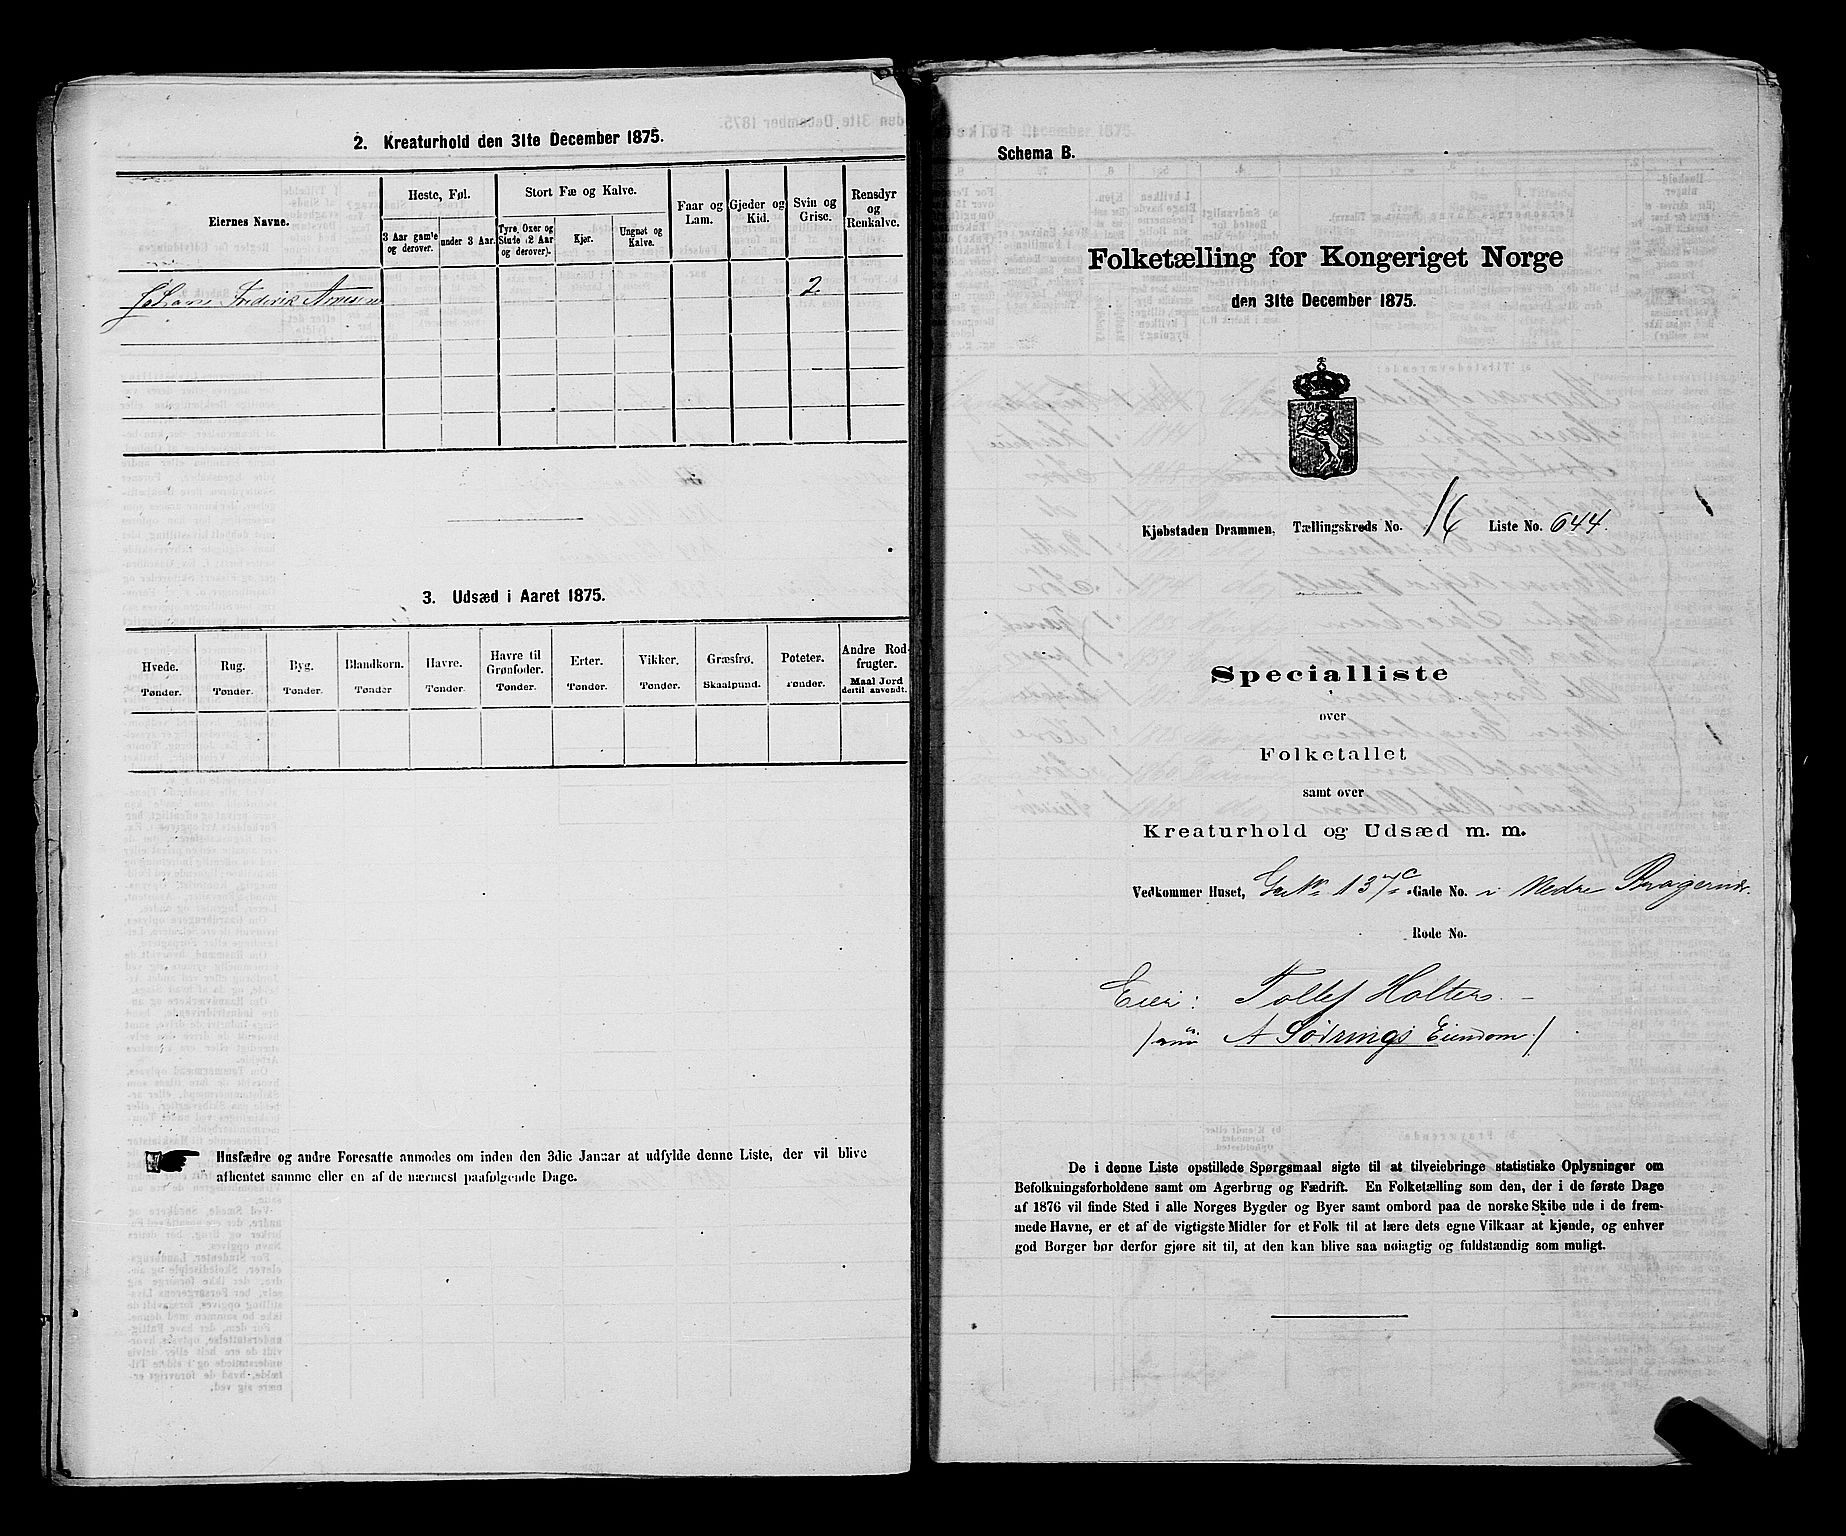 2. Kreaturhold den 31te December 1875.
Eiernes Navne.
Heste, Føl.
3 Aar gamle og derover.
under 3 Aar.
Stort Fæ og Kalve.
Tyre, Oxer og Stude (2 Aar og derover).
Kjør.
Ungnøt og Kalve.
Faar og Lam.
Gjeder og Kid.
Svin og Grise.
Rensdyr og Renkalve.
Johan Frederik Arnesen 2
3. Udsæd i Aaret 1875.
Hvede. Tønder.
Rug. Tønder.
Byg. Tønder.
Blandkorn. Tønder
Havre. Tønder.
Havre til Grønfoder. Tønder.
Erter. Tønder.
Vikker. Tønder.
Græsfrø. Skaalpund.
Poteter. Tønder.
Andre Rodfrugter. Maal Jord dertil anvendt.
Husfædre og andre Foresatte anmodes om inden den 3die Januar at udfylde denne Liste, der vil blive
afhentet samme eller en af de nærmest paafølgende Dage.
Schema B.
Folketælling for Kongeriget Norge
den 31te December 1875.
Kjøbstaden Drammen, Tællingskreds No. 16 Liste No. 644.
Specialliste
over
Folketallet
samt over
Kreaturhold og Udsæd m. m.
Vedkommer Huset, 137c Gade No. i Nedre Bragernæs
Rode No.
Eier: Tollef Holter
A Sørings Eiendom
De i denne Liste opstillede Spørgsmaal sigte til at tilveiebringe statistiske Oplysninger om
Befolkningsforholdene samt om Agerbrug og Fædrift. En Folketælling som den, der i de første Dage
af 1876 vil finde Sted i alle Norges Bygder og Byer samt ombord paa de norske Skibe ude i de frem-
mede Havne, er et af de vigtigste Midler for et Folk til at lære dets egne Vilkaar at kjende, og enhver
god Borger bør derfor gjøre sit til, at den kan blive saa nøiagtig og fuldstændig som muligt.